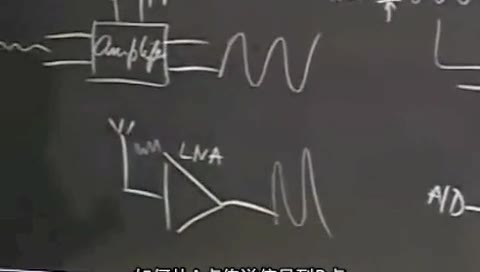 Amplifier
LNA
A/D
如何从A点传送信号到B点